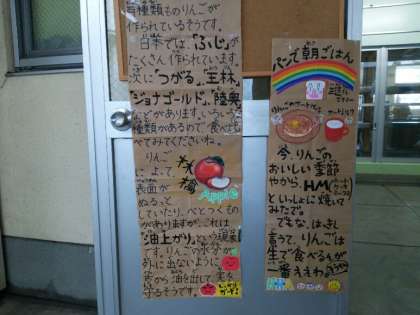 百種類ものりんごが
作られているそうです。
日本では、「ふじ」が
たくさん作られています。
次に「つがる」、「王林」、
「ジョナゴールド」、「陸奥」
などがあります。いろいろな
種類があるので食べ比
べてみてくださいね。
りんご
によって、
表面が
ぬるっと
していたり、べとつくもの
がありますが、これは
「油上がり」という現象
です。りんごの水分が
外に出ないように
皮から油を出して、実を
守るそうです。
Apple
パンで朝ごはん
りんごのケーキ
今、りんごの
おいしい季節
やから、HM
といっしょに焼いて
みたで。
でもな、はっきし
言って、りんごは
生で食べるんが
一番ええわ。